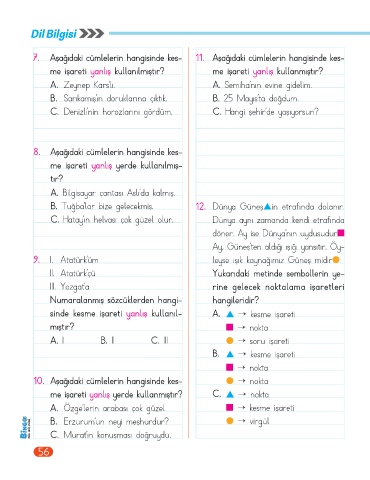 Dil Bilgisi
7. Aşağıdaki cümlelerin hangisinde kes-
me işareti yanlış kullanılmıştır?
A. Zeynep Kars'lı.
B. Sarıkamış'ın doruklarına çıktık.
C. Denizli'nin horozlarını gördüm.
8. Aşağıdaki cümlelerin hangisinde kes-
me işareti yanlış yerde kullanılmış-
tır?
A. Bilgisayar çantası Aslı'da kalmış.
B. Tuğba'lar bize gelecekmiş.
C. Hatay'ın helvası çok güzel olur.
9. I. Atatürk'üm
II. Atatürk'çü
III. Yozgat'a
Numaralanmış sözcüklerden hangi-
sinde kesme işareti yanlış kullanıl-
mıştır?
A. I B. II C. III
10. Aşağıdaki cümlelerin hangisinde kes-
me işareti yanlış yerde kullanmıştır?
A. Özge'lerin arabası çok güzel.
B. Erzurum'un neyi meşhurdur?
C. Murat'ın konuşması doğruydu.
11. Aşağıdaki cümlelerin hangisinde kes-
me işareti yanlış kullanmıştır?
A. Semiha'nın evine gidelim.
B. 25 Mayıs'ta doğdum.
C. Hangi şehir'de yaşıyorsun?
12. Dünya Güneş▲in etrafında dolanır.
Dünya aynı zamanda kendi etrafında
döner. Ay ise Dünya'nın uydusudur■
Ay, Güneş'ten aldığı ışığı yansıtır. Öy-
leyse ışık kaynağımız Güneş midir●
Yukarıdaki metinde sembollerin ye-
rine gelecek noktalama işaretleri
hangileridir?
A. ▲ → kesme işareti
■ → nokta
● → soru işareti
B. ▲ → kesme işareti
■ → nokta
● → nokta
C. ▲ → nokta
■ → kesme işareti
● → virgül
56